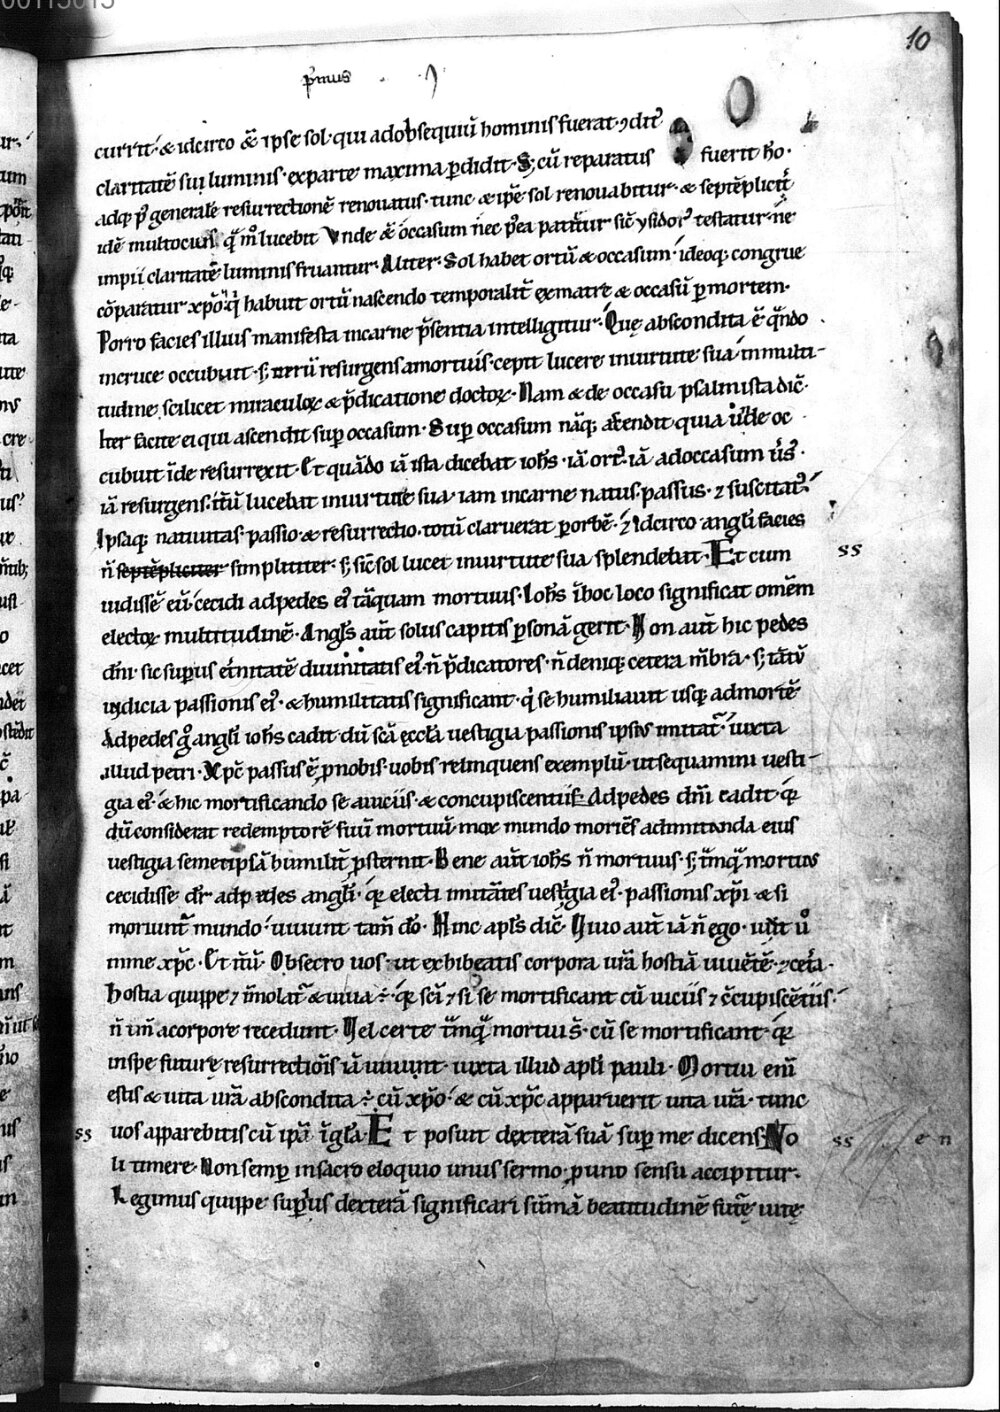 10
p̄mus
currit· & idcirco & ipse sol· qui ad obsequiū hominis fuerat ꝯdit᷒
claritatē sui luminis· ex parte maxima ꝑdidit· S; cū reparatus fuerit hō·
adqꝫ ꝑ generalē resurrectionē renouatus· tunc & ipē sol renouabitur· & septēplicit̄
idē multociens q̄ m̊ lucebit Vnde & occasum nec p̄ea patiētur sic̄ ysidor᷒ testatur· ne
impii claritatē luminis fruantur· Aliter· Sol habet ortū & occasum· ideoqꝫ congrue
cōparatur xp̄o· q̇ habuit ortū nascendo temporalit̄ ex matre & occasū ꝑ mortem·
Porro facies illius manifesta in carne p̄sentia intelligitur· Quę abscondita ē q̄ndo
in cruce occubuit· s; it̄rū resurgens a mortuis· cepit lucere in uirtute sua· in multi-
tudine scilicet miraculoꝝ & p̄dicatione doctoꝝ· Nam & de occasu psalmista dic̄·
Iter facite ei qui ascendit suꝑ occasum· Suꝑ occasum nāqꝫ ascendit quia unde oc
cubuit īde resurrexit· Et quādo iā ista dicebat ioh̄s· iā ort᷒· iā ad occasum ūs᷒·
iā resurgens· it̄ū lucebat in uirtute sua· iam in carne natus· passus· ⁊ suscitat᷒·
Ipsaqꝫ natiuitas· passio & resurrectio· totū claruerat ꝑ orbē· ⁊ idcirco angl̄i facies
n̄ septēpliciter simpliciter· s; sic̄ sol lucet in uirtute sua splendebat· Et cum
ss
uidissē eū· cecidi ad pedes ei᷒ tāquam mortuus· Ioh̄s ī hoc loco significat omēm
electoꝝ multitudinē· Angl̄s aūt solus capitis ꝑsonā gerit· Non aūt hic pedes
dn̄i· sic supius et̄nitatē diuinitatis ei᷒· n̄ p̄dicatores· n̄ deniqꝫ cetera m̄bra· s; tātū
iudicia passionis ei᷒· & humilitatis significant· q̇ se humiliauit usqꝫ ad mortē
Ad pedes g̊ angl̄i ioh̄s cadit· dū sc̄a ęccl̄a uestigia passionis ipsius imitat᷒· iuxta
illud petri· Xp̄c passus ē ꝓ nobis· uobis relinquens exemplū· ut sequamini uesti-
gia ei᷒· & hic mortificando se a uiciis· & concupiscentiis· Ad pedes dn̄i cadit· q̇
dū considerat redemptorē suū mortuū· mox mundo moriēs ad imitanda eius
uestigia semetipsā humilit̄ ꝓsternit· Bene aūt ioh̄s n̄ mortuus· s; tāmqā mortuus
cecidisse dr̄ ad pedes angl̄i· q̇ electi imitātes uestigia ei᷒ passionis xp̄i & si
moriunt̄ mundo· uiuunt tam̄ dō· Hinc apl̄s dic̄· Viuo aūt iā n̄ ego· uiuit ů
in me xp̄c· Et it̄ū· Obsecro uos· ut exhibeatis corpora ur̄a hostiā uiuētē· ⁊ cet̄a·
Hostia quippe ⁊ īmolat᷒ & uiua ÷· q̇ sc̄i ⁊ si se mortificant cū uiciis ⁊ ꝯcupiscētiis·
n̄ tn̄ a corpore recedunt· Vel certe tāmqā mortuus· cū se mortificant· q̇
in spe futurę resurrectiōis iā uiuunt· iuxta illud apl̄i pauli· Mortui enī
estis & uita ur̄a abscondita ÷ cū xp̄o· & cū xp̄c apparuerit uita ur̄a· tunc
ss
uos apparebitis cū ip̄o ī gl̄a· Et posuit dexterā suā suꝑ me dicens· No
ss
en
li timere· Non semꝑ in sacro eloquio unus sermo· ꝓ uno sensu accipitur·
Legimus quippe supi᷒us dexterā significari sūmā beatitudinē futurę uitę